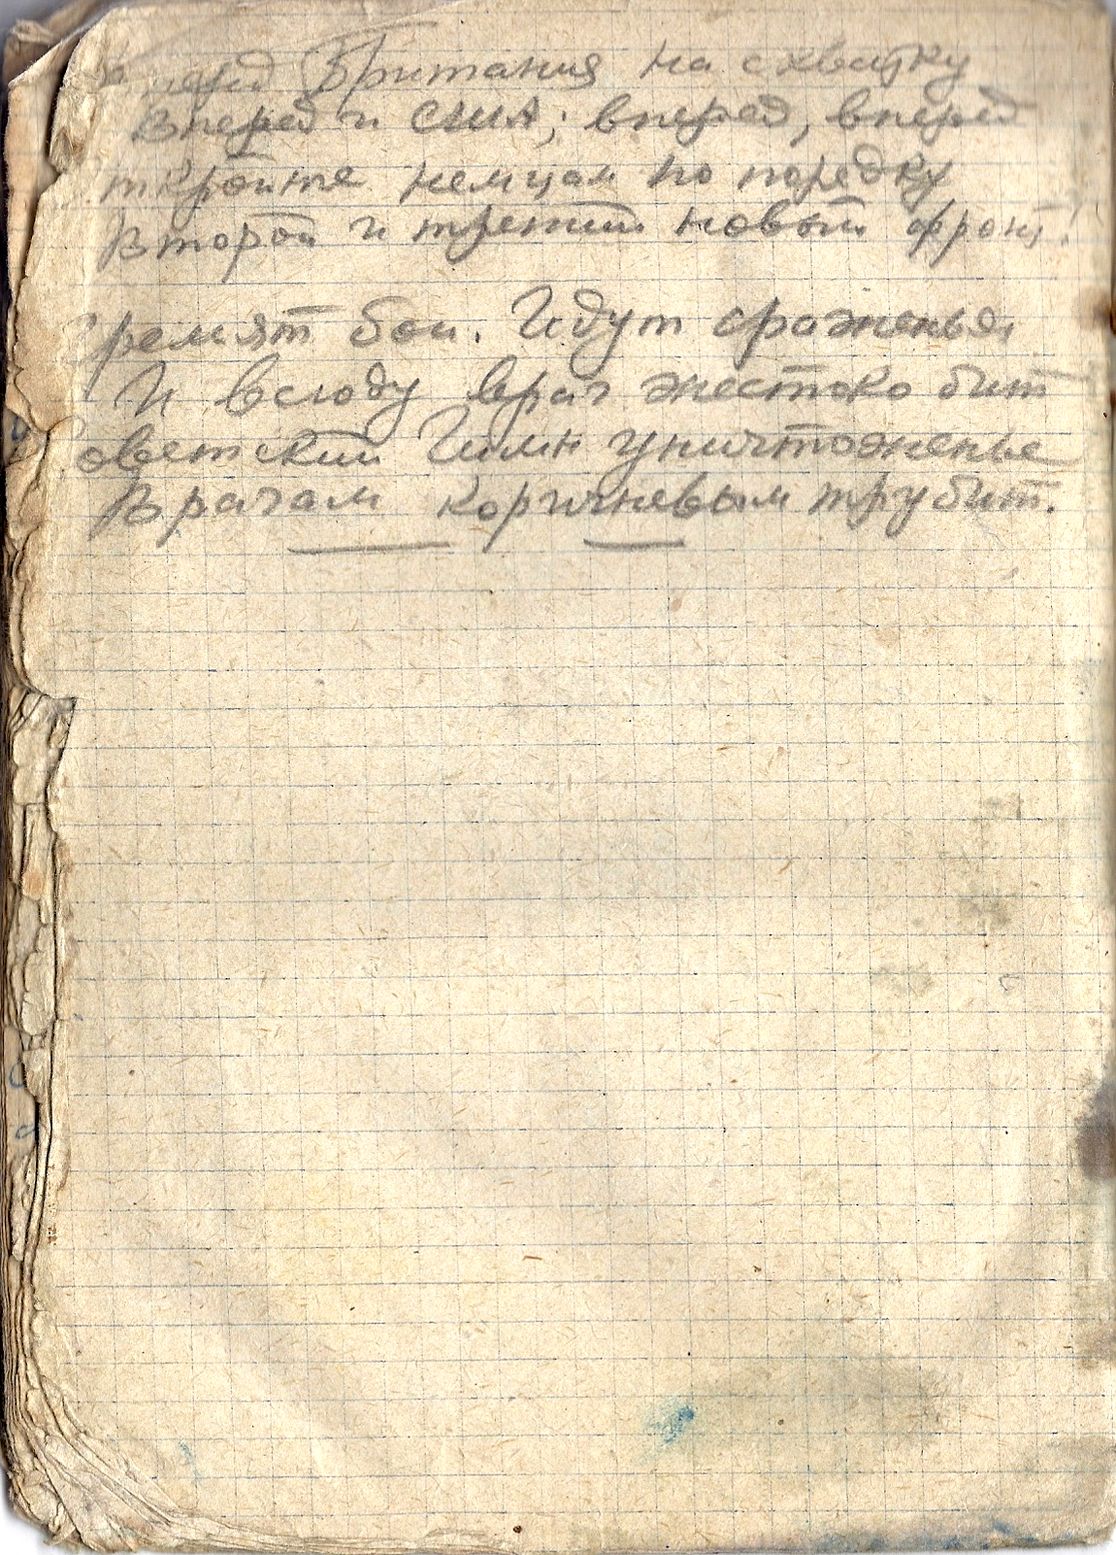 Вперед Британия на схватку
Вперед и США; вперед, вперед
ткройте немцам по поредку
Второй и третий новый фронт!
Гремят бои. Идут сраженья,
И всюду враг жестоко бит
Советский Гимн уничтоженье
Врагам коричневым трубит.